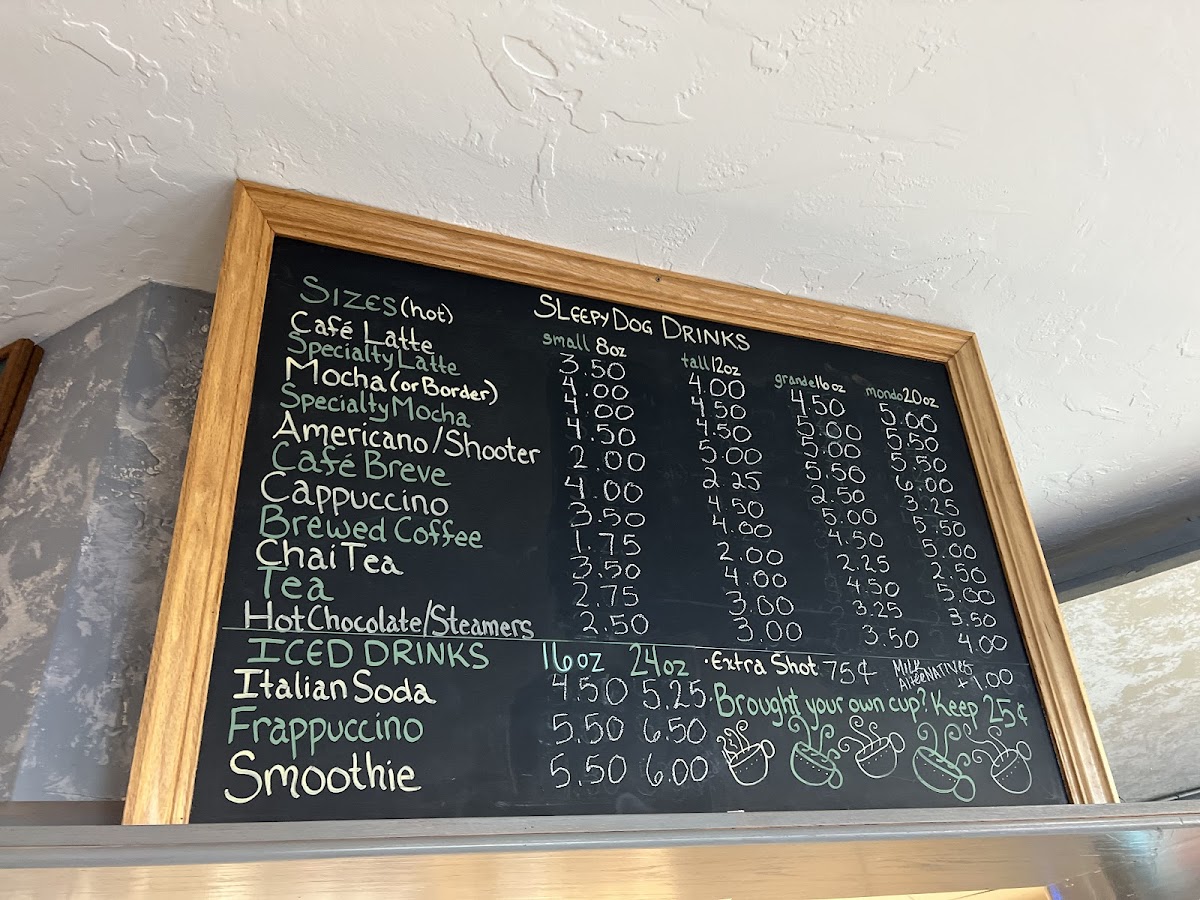 SLEEPY DOG DRINKS
SIZES (hot) small 8oz tall 12oz grande 16oz mondo 20oz
Café Latte 3.50 4.00 4.50 5.00
Specialty Latte 4.00 4.50 5.00 5.50
Mocha (or Border) 4.00 4.50 5.00 5.50
Specialty Mocha 4.50 5.00 5.50 6.00
Americano/Shooter 2.00 2.25 2.50 3.25
Café Breve 4.00 4.50 5.00 5.50
Cappuccino 3.50 4.00 4.50 5.00
Brewed Coffee 1.75 2.00 2.25 2.50
Chai Tea 3.50 4.00 4.50 5.00
Tea 2.75 3.00 3.25 3.50
Hot Chocolate/Steamers 2.50 3.00 3.50 4.00
ICED DRINKS 16oz 24oz
Italian Soda 4.50 5.25
Frappuccino 5.50 6.50
Smoothie 5.50 6.00
·Extra Shot 75¢
MILK ALTERNATIVES +1.00
·Brought your own cup? Keep 25¢